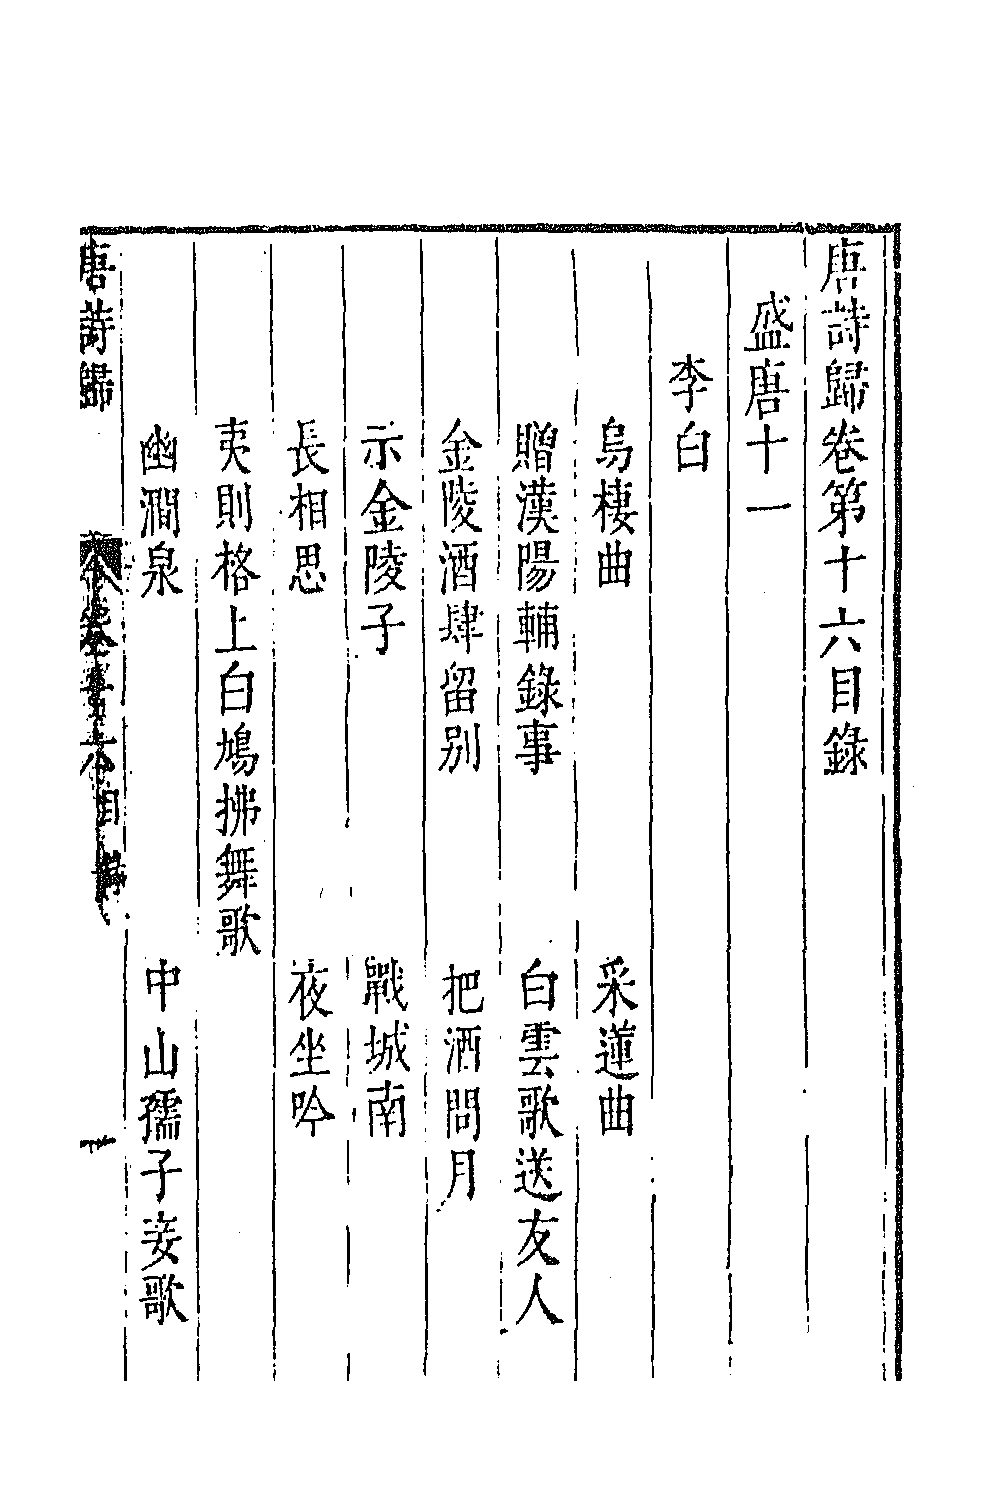 唐詩歸卷第十六目錄
盛唐十一
李白
烏棲曲　采蓮曲
贈漢陽輔錄事　白雲歌送友人
金陵酒肆留別　把酒問月
示金陵子　戰城南
長相思　夜坐吟
夷則格上白鳩拂舞歌
幽澗泉　中山孺子妾歌
唐詩歸　卷十六目錄　一